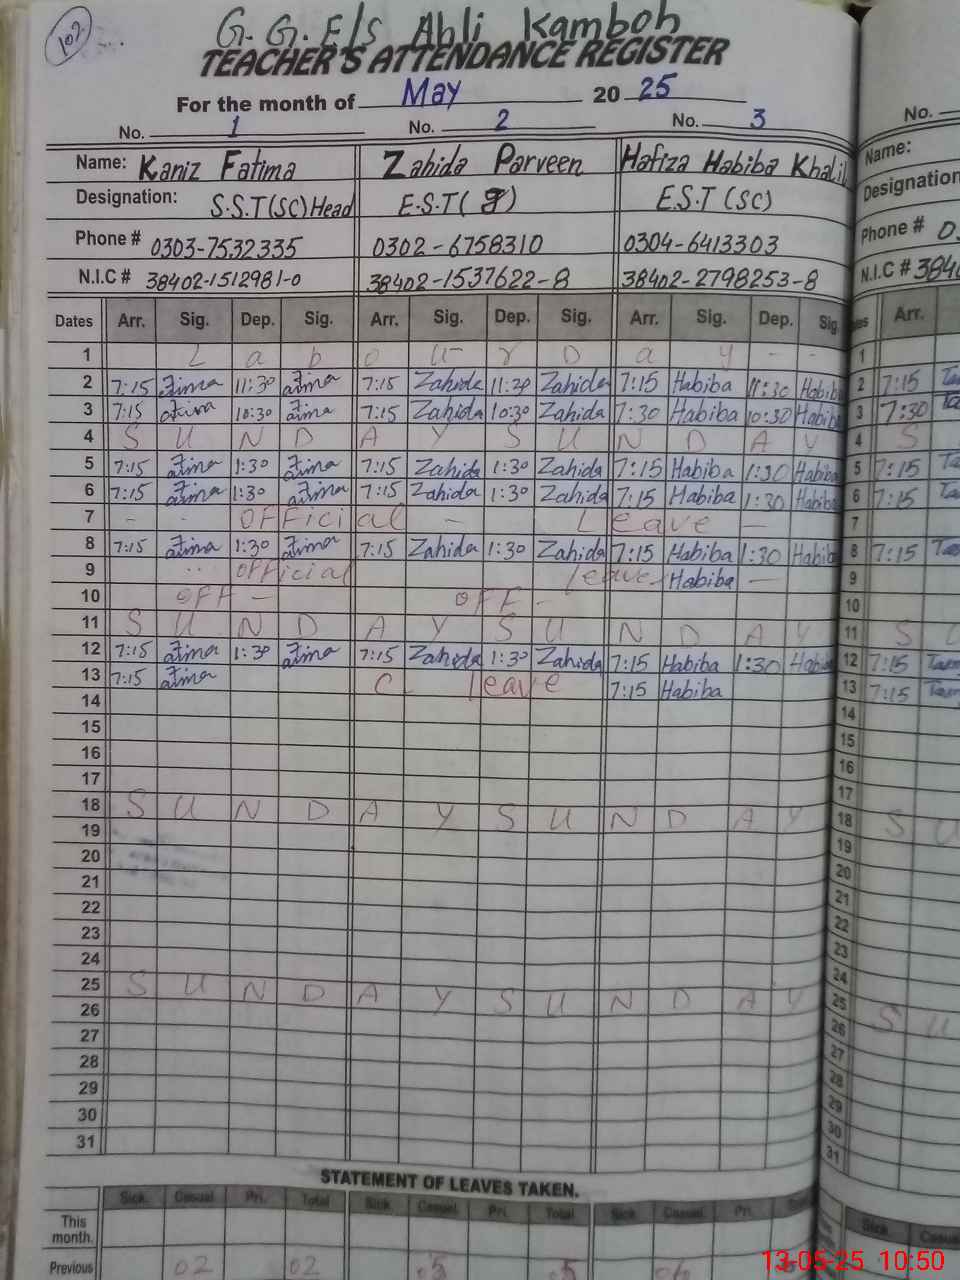 102
G.G.E/S Ahli Kamboh
TEACHER'S ATTENDANCE REGISTER
For the month of May 2025
No. 1 No. 2 No. 3 No.
Name: Kaniz Fatima Zahida Parveen Hafiza Habiba Khalil Name:
Designation: S.S.T(SC)Head E.S.T( ) E.S.T(SC) Designation
Phone # 0303-7532335 0302-6758310 0304-6413303 Phone # 0
N.I.C # 38402-1512981-0 38402-1537622-8 38402-2798253-8 N.I.C # 384
Dates Arr. Sig. Dep. Sig. Arr. Sig. Dep. Sig. Arr. Sig. Dep. Sig. Arr.
1 L a b o u r D a y - - 1
2 7:15 Fatima 11:30 Fatima 7:15 Zahida 11:30 Zahida 7:15 Habiba 11:30 Habiba 2 7:15
3 7:15 Fatima 10:30 Fatima 7:15 Zahida 10:30 Zahida 7:30 Habiba 10:30 Habiba 3 7:30
4 S U N D A Y S U N D A Y 4 S
5 7:15 Fatima 1:30 Fatima 7:15 Zahida 1:30 Zahida 7:15 Habiba 1:30 Habiba 5 7:15
6 7:15 Fatima 1:30 Fatima 7:15 Zahida 1:30 Zahida 7:15 Habiba 1:30 Habiba 6 7:15
7 - - OFFicial - Leave - 7
8 7:15 Fatima 1:30 Fatima 7:15 Zahida 1:30 Zahida 7:15 Habiba 1:30 Habiba 8 7:15
9 official leave Habiba - 9
10 OFF - OFF - 10
11 S U N D A Y S U N D A Y 11 S U
12 7:15 Fatima 1:30 Fatima 7:15 Zahida 1:30 Zahida 7:15 Habiba 1:30 Habiba 12 7:15
13 7:15 Fatima C- Leave 7:15 Habiba 13 7:15
14 14
15 15
16 16
17 17
18 S U N D A Y S U N D A Y 18 S U
19 19
20 20
21 21
22 22
23 23
24 24
25 S U N D A Y S U N D A Y 25 S U
26 26
27 27
28 28
29 29
30 30
31 31
STATEMENT OF LEAVES TAKEN.
Sick. Casual Pri. Total Sick. Casual Pri. Total Sick. Casual Pri. Sick Casual
This month.
Previous 02 02 05 05 06
13-05-25 10:50